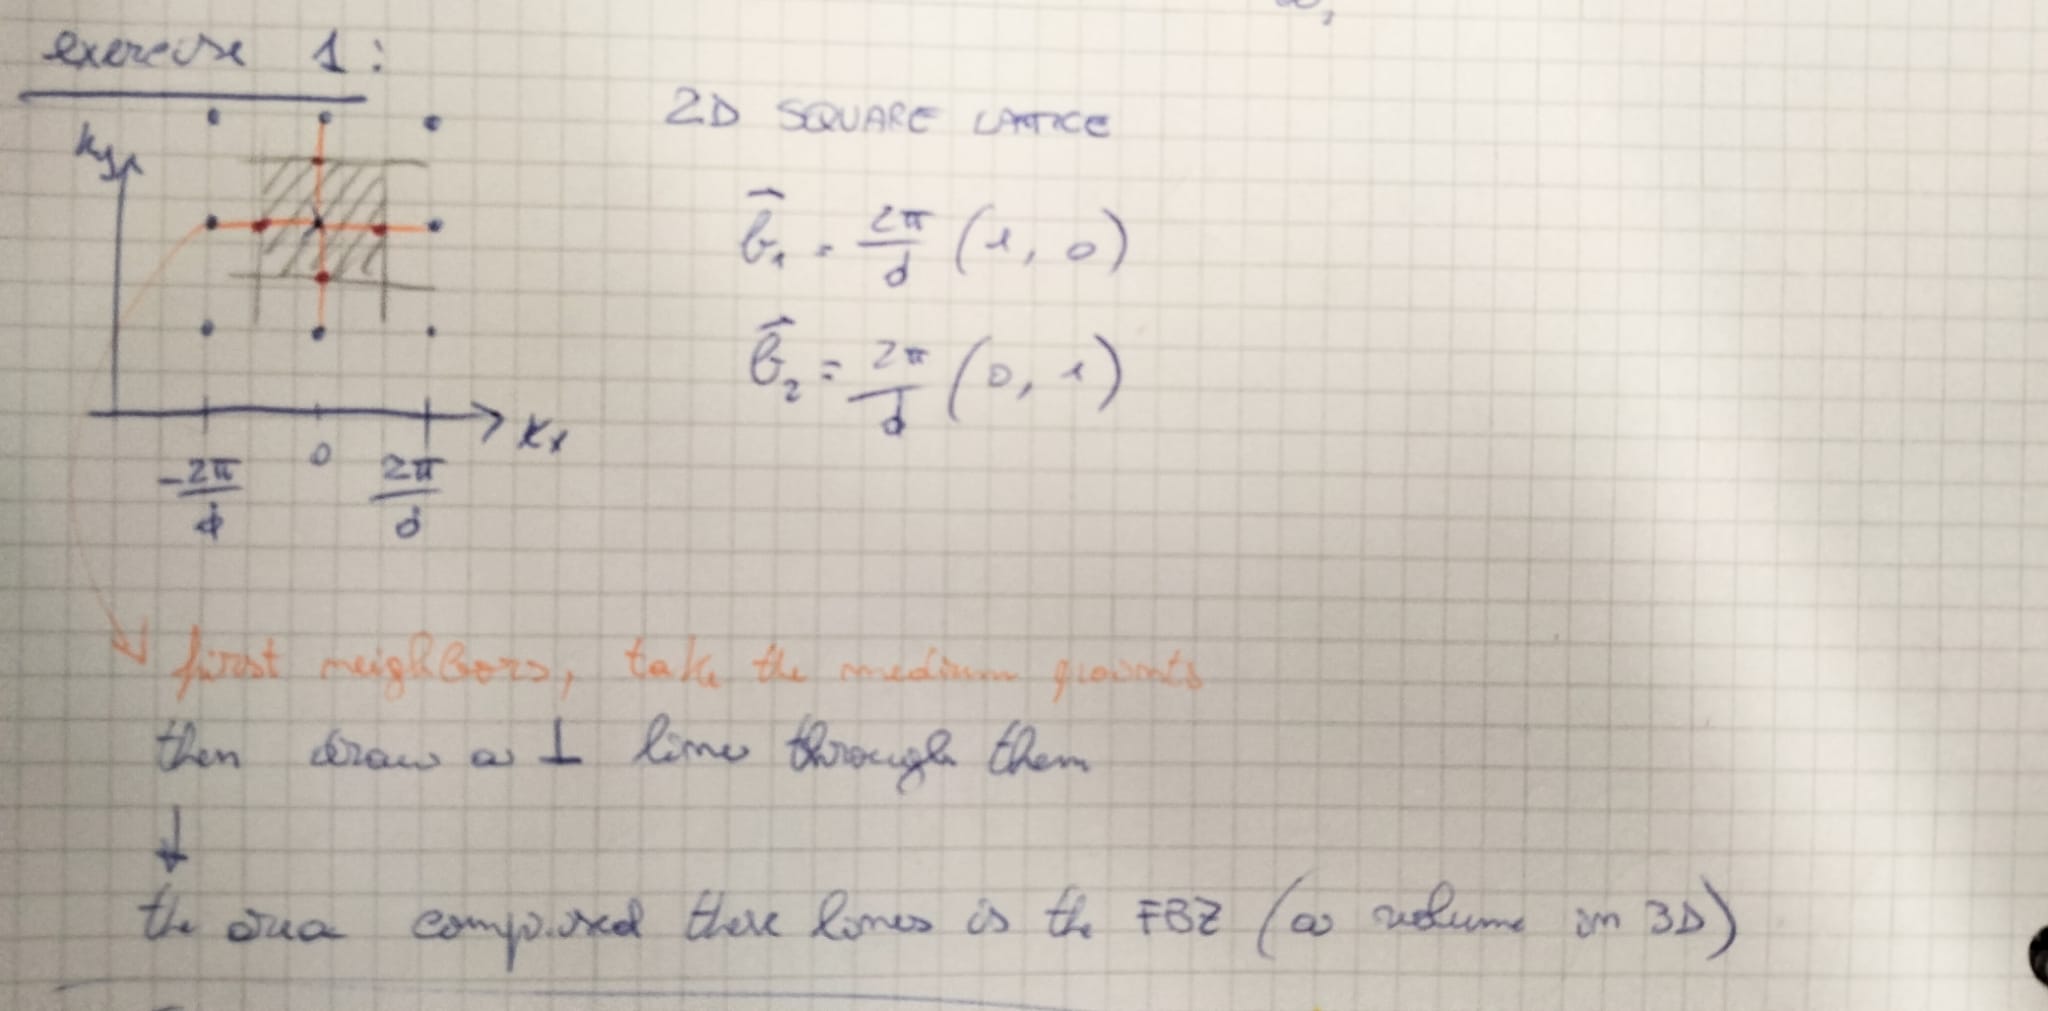 exercise 1:
2D SQUARE LATTICE
ky
b⃗₁ = 2π/d (1, 0)
b⃗₂ = 2π/d (0, 1)
kx
-2π/d 0 2π/d
first neighbors, take the medium points
then draw a ⊥ line through them
↓
the area composed these lines is the FBZ (a volume in 3D)